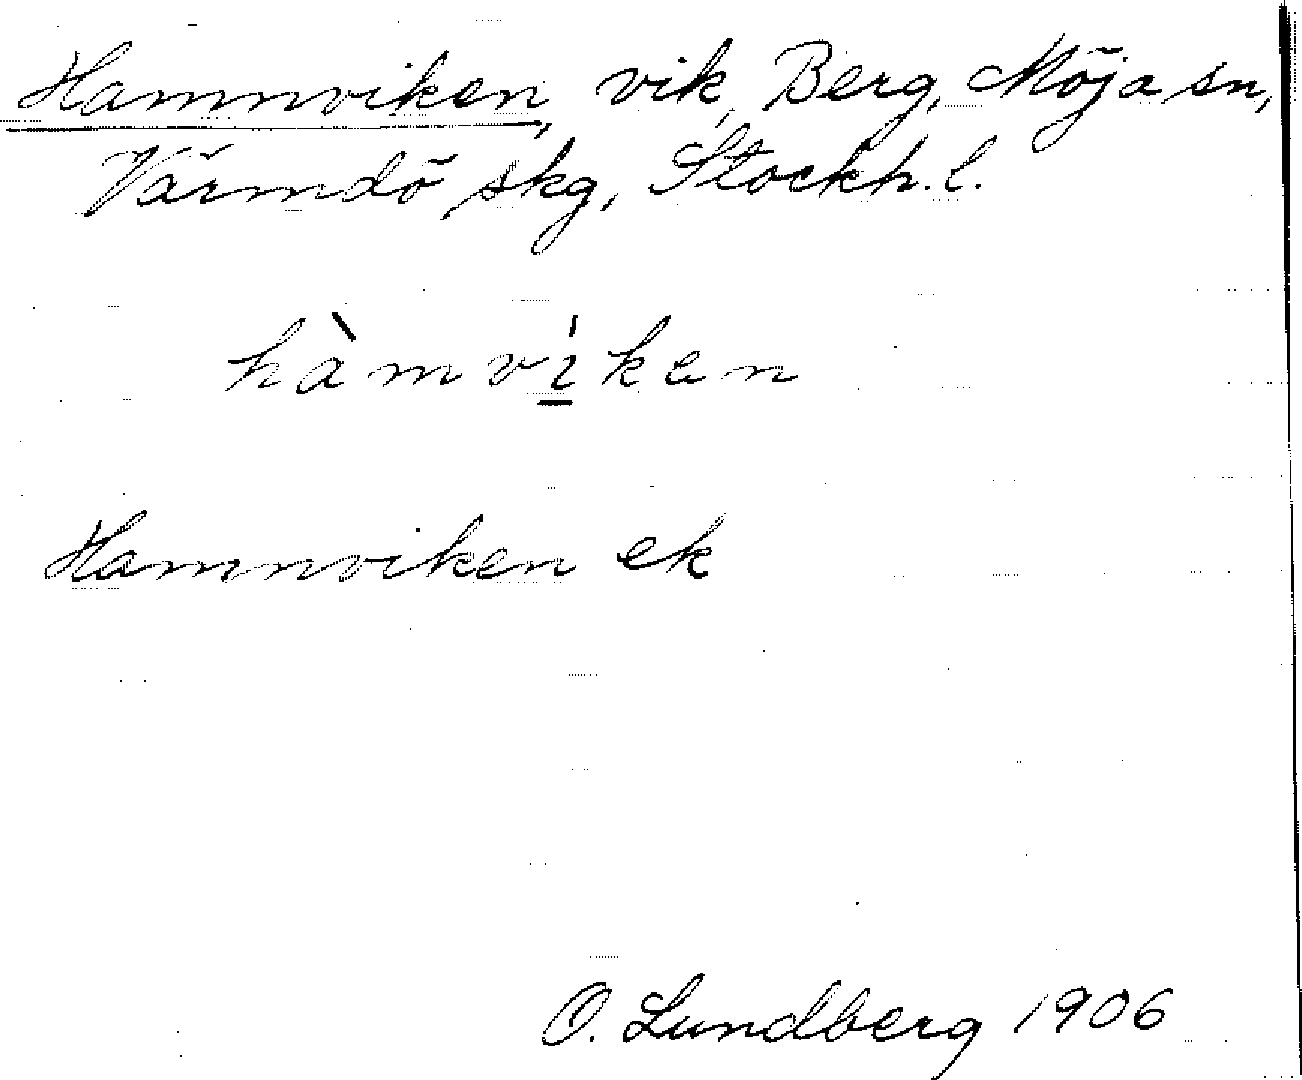 Hamnviken, vik, Berg, Möja sn,
Värmdö skg, Stockh. l.
hàmvi̲ken
Hamnviken ek
O. Lundberg 1906